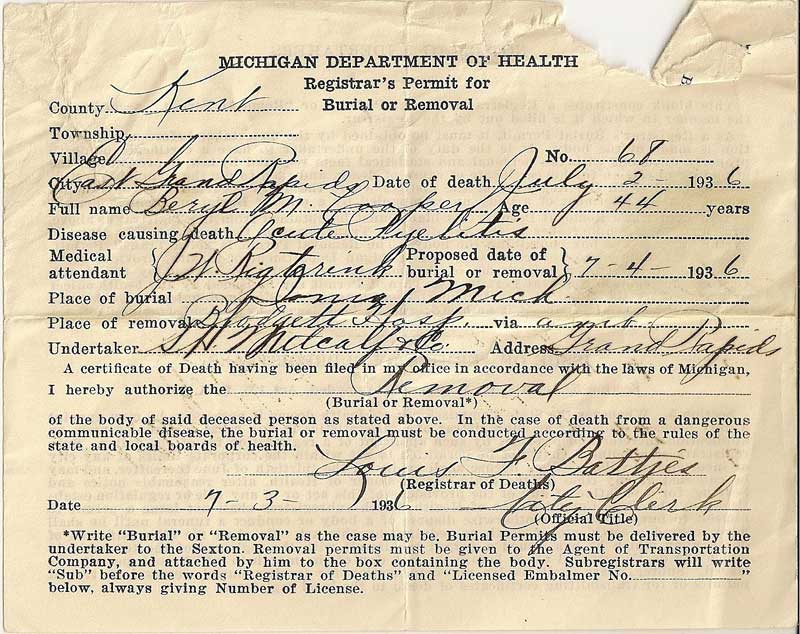 MICHIGAN DEPARTMENT OF HEALTH
Registrar's Permit for
Burial or Removal
County Kent
Township
Village No. 68
City East Grand Rapids Date of death July 2- 1936
Full name Beryl M. Cooper Age 44 years
Disease causing death Acute Pyelitis
Medical attendant J W Rigterink Proposed date of burial or removal 7-4- 1936
Place of burial Ionia, Mich.
Place of removal Blodgett Hosp. via amb
Undertaker S H Metcalf & Co. Address Grand Rapids
A certificate of Death having been filed in my office in accordance with the laws of Michigan,
I hereby authorize the Removal
(Burial or Removal*)
of the body of said deceased person as stated above. In the case of death from a dangerous
communicable disease, the burial or removal must be conducted according to the rules of the
state and local boards of health.
Louis F. Battjes
(Registrar of Deaths)
Date 7-3- 1936 City Clerk
(Official Title)
*Write "Burial" or "Removal" as the case may be. Burial Permits must be delivered by the
undertaker to the Sexton. Removal permits must be given to the Agent of Transportation
Company, and attached by him to the box containing the body. Subregistrars will write
"Sub" before the words "Registrar of Deaths" and "Licensed Embalmer No. "
below, always giving Number of License.